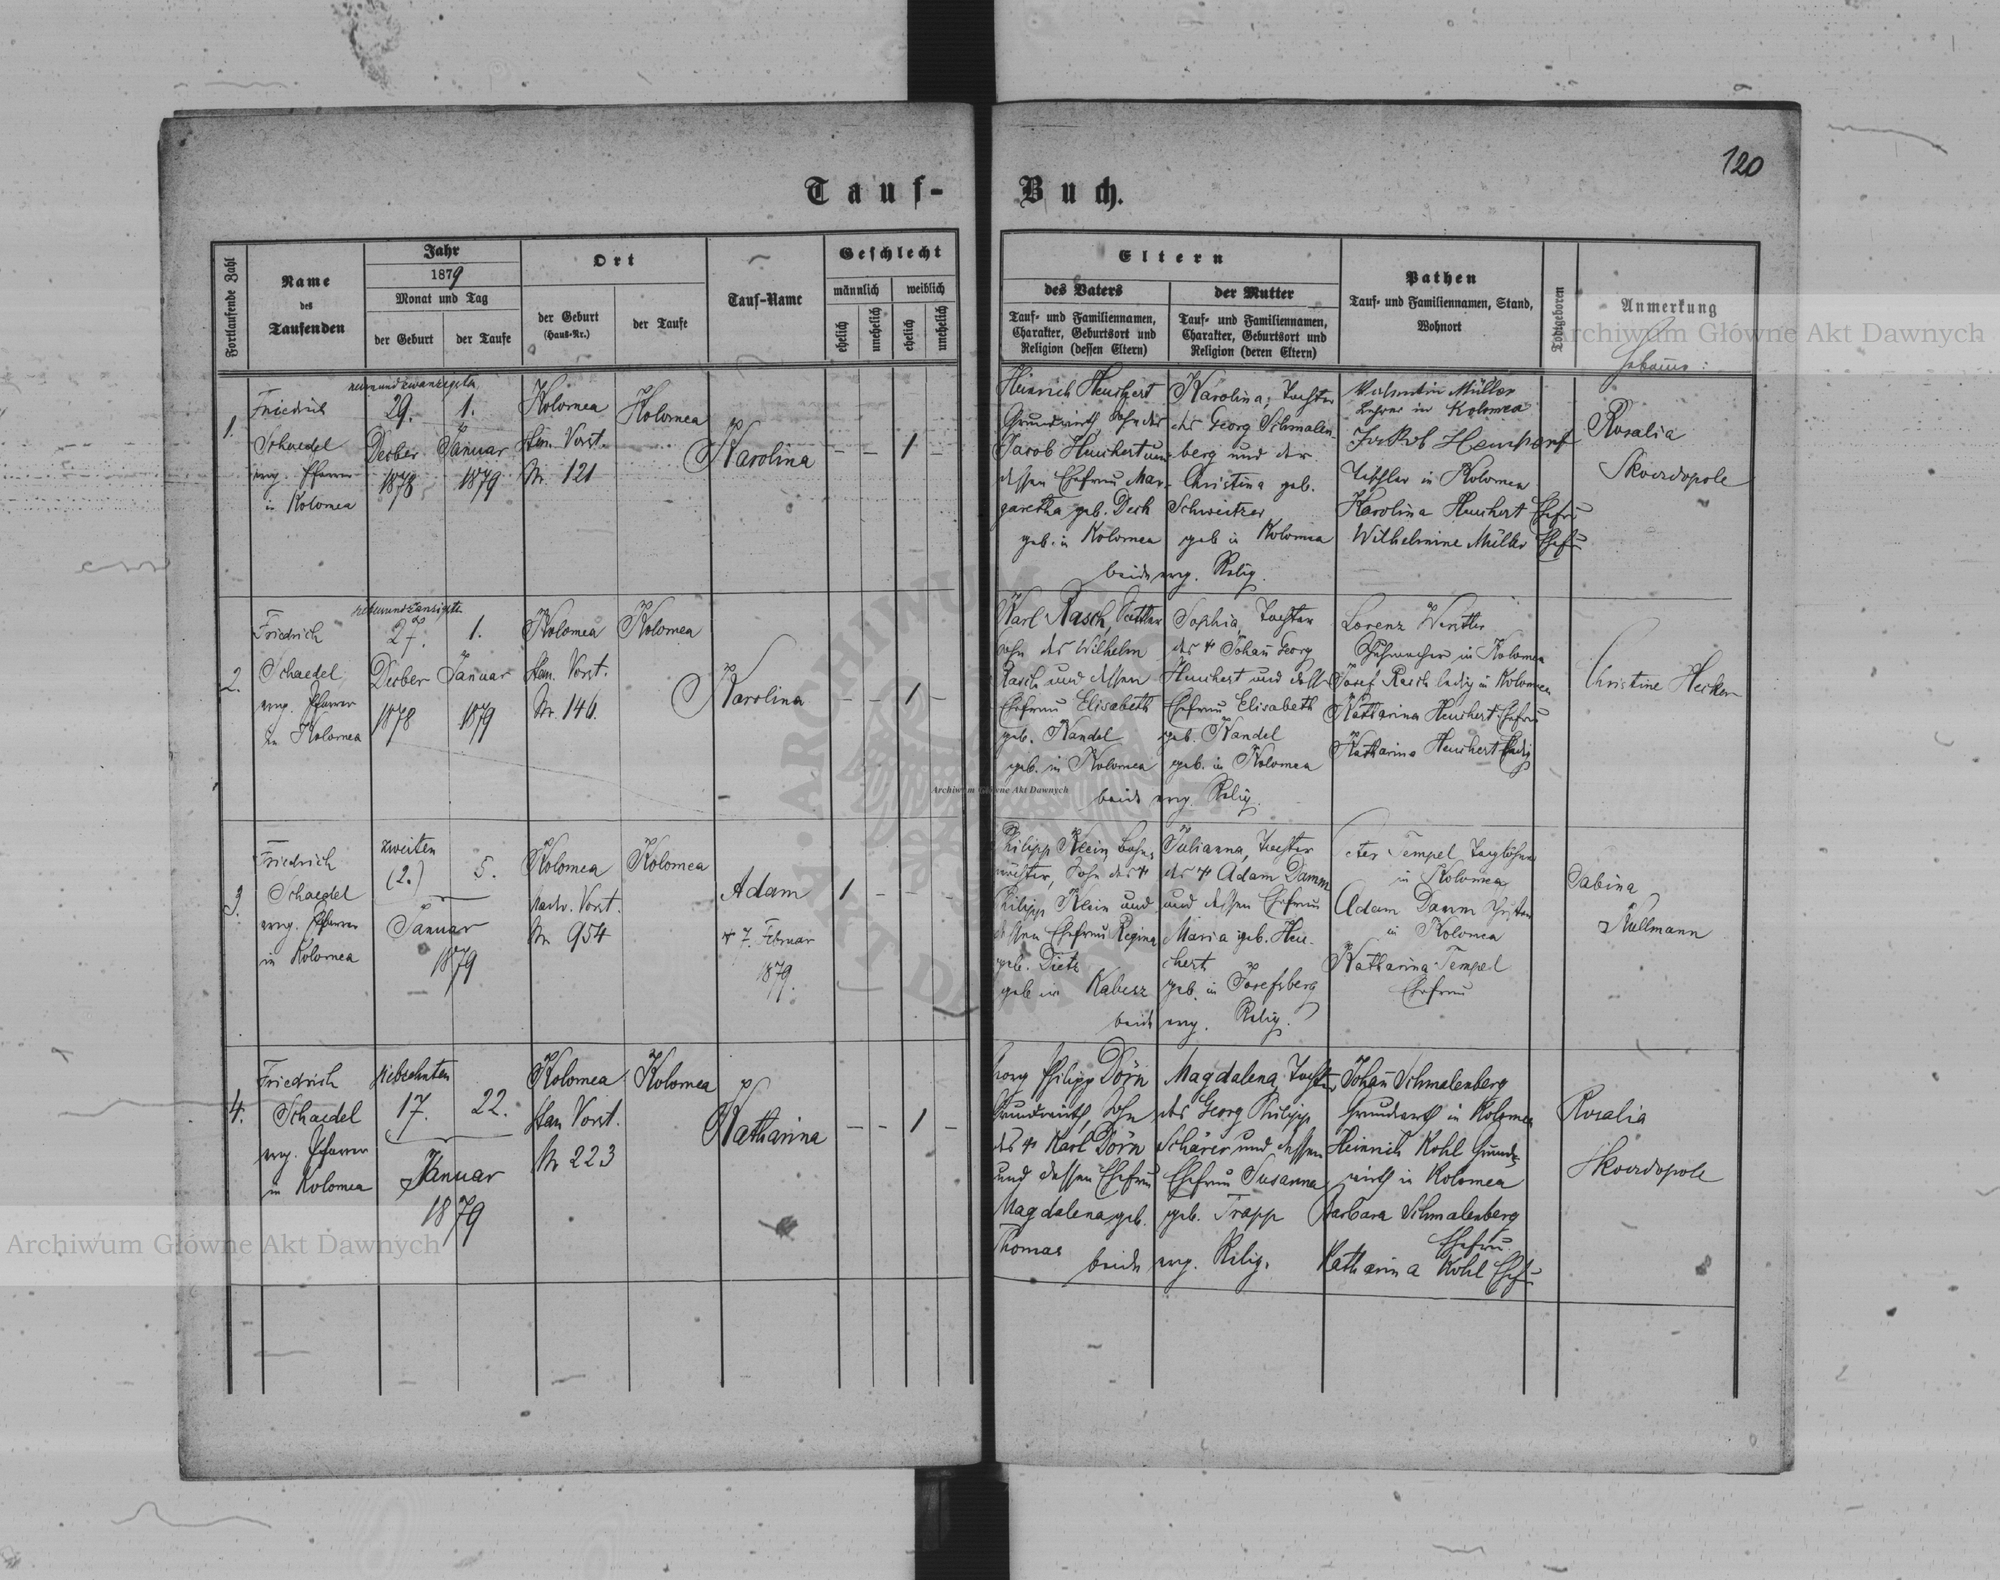 120
Tauf-Buch.
Fortlaufende Zahl
Name
des
Taufenden
Jahr
1879
Monat und Tag
der Geburt
der Taufe
Ort
der Geburt
(Haus-Nr.)
der Taufe
Tauf-Name
Geschlecht
männlich
weiblich
ehelich
unehelich
ehelich
unehelich
Eltern
des Vaters
Tauf- und Familiennamen,
Charakter, Geburtsort und
Religion (dessen Eltern)
der Mutter
Tauf- und Familiennamen,
Charakter, Geburtsort und
Religion (deren Eltern)
Pathen
Tauf- und Familiennamen, Stand,
Wohnort
Todtgeboren
Anmerkung
1.
Friedrich
Schaedel
evg. Pfarrer
in Kolomea
neunundzwanzigsten
29.
Decber
1878
1.
Januar
1879
Kolomea
Stan. Vorst.
Nr. 121
Kolomea
Karolina
– – 1 –
Heinrich Heuchert
Grundwirth, Sohn des
Jacob Heuchert und
dessen Ehefrau Mar-
garetha geb. Desh
geb. in Kolomea
Karolina, Tochter
des Georg Schmalen-
berg und der
Christina geb.
Schweitzer
geb in Kolomea
beide evg. Relig.
Valentin Müller
Lehrer in Kolomea
Jakob
Tischler in Kolomea
Karolina Heuchert Ehefr
Wilhelmine Müller Ehefr
Rosalia
Skordopole
2.
Friedrich
Schaedel
evg. Pfarrer
in Kolomea
27.
Decber
1878
1.
Januar
1879
Kolomea
Stan. Vorst.
Nr. 146.
Kolomea
Karolina
– – 1 –
Karl Rasch, Sattler
Sohn des Wilhelm
Rasch und dessen
Ehefrau Elisabeth
geb. Kandel
geb. in Kolomea
Sophia, Tochter
des † Johan Georg
Heuchert und dess
Ehefrau Elisabeth
geb. Kandel
geb. in Kolomea
beide evg. Relig.
Lorenz
Schuhmacher in Kolomea
Josef Rasch ledig in Kolomea
Katharina Heuchert Ehefrau
Katharina Heuchert ledig
Christine Hecker
3.
Friedrich
Schaedel
evg. Pfarrer
in Kolomea
zweiten
(2.)
5.
Januar
1879
Kolomea
Nadw. Vorst.
Nr 954
Kolomea
Adam
† 7. Februar
1879.
1 – – –
Philipp Klein, Bahn-
wächter, Sohn des †
Philipp Klein und
dessen Ehefrau Regina
geb. Dietz
geb in
Julianna, Tochter
des † Adam Damm
und dessen Ehefrau
Maria geb. Heu-
chert
geb. in Josefsberg
beide evg. Relig.
Peter Tempel Taglöhner
in Kolomea
Adam Damm
in Kolomea
Katharina Tempel
Ehefrau
Sabina
Kullmann
4.
Friedrich
Schaedel
evg. Pfarrer
in Kolomea
siebzehnten
17.
22.
Januar
1879
Kolomea
Stan Vorst.
Nr 223
Kolomea
Katharina
– – 1 –
Georg Philipp Dörn
Grundwirth, Sohn
des † Karl Dörn
und dessen Ehefrau
Magdalena geb.
Thomas
Magdalena, Tochter
des Georg Philipp
Schärer und dessen
Ehefrau Susanna
geb. Trapp
beide evg. Relig.
Johan Schmalenberg
Grundwirth in Kolomea
Heinrich Kohl Grund-
wirth in Kolomea
Barbara Schmalenberg
Ehefrau
Katharina Kohl Ehefr
Rosalia
Skordopole
Archiwum Główne Akt Dawnych
Archiwum Główne Akt Dawnych
Archiwum Główne Akt Dawnych